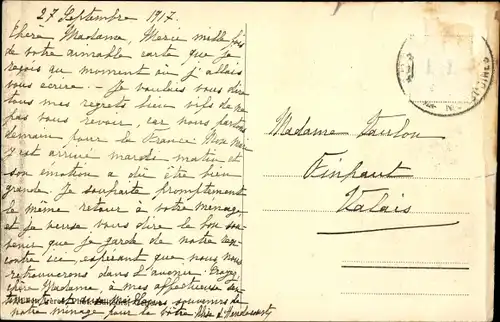 27 Septembre 1917.
Chère Madame, Merci mille fois
de votre aimable carte que je
reçois au moment où j'allais
vous écrire - Je voulais vous dire
tous mes regrets bien vifs de ne
pas vous revoir, car nous partons
demain pour la France Mon mari
est arrivé mardi matin et
son émotion a dû être bien
grande. Je souhaite promptement
le même retour à votre ménage,
et je veux vous dire le bon sou-
venir que je garde de notre ren-
contre ici, espérant que nous nous
retrouverons dans l'avenir. Croyez,
chère Madame, à mes affectueux sen-
timents et aux meilleurs souvenirs de
notre ménage pour le vôtre
Madame
Finhaut
Valais